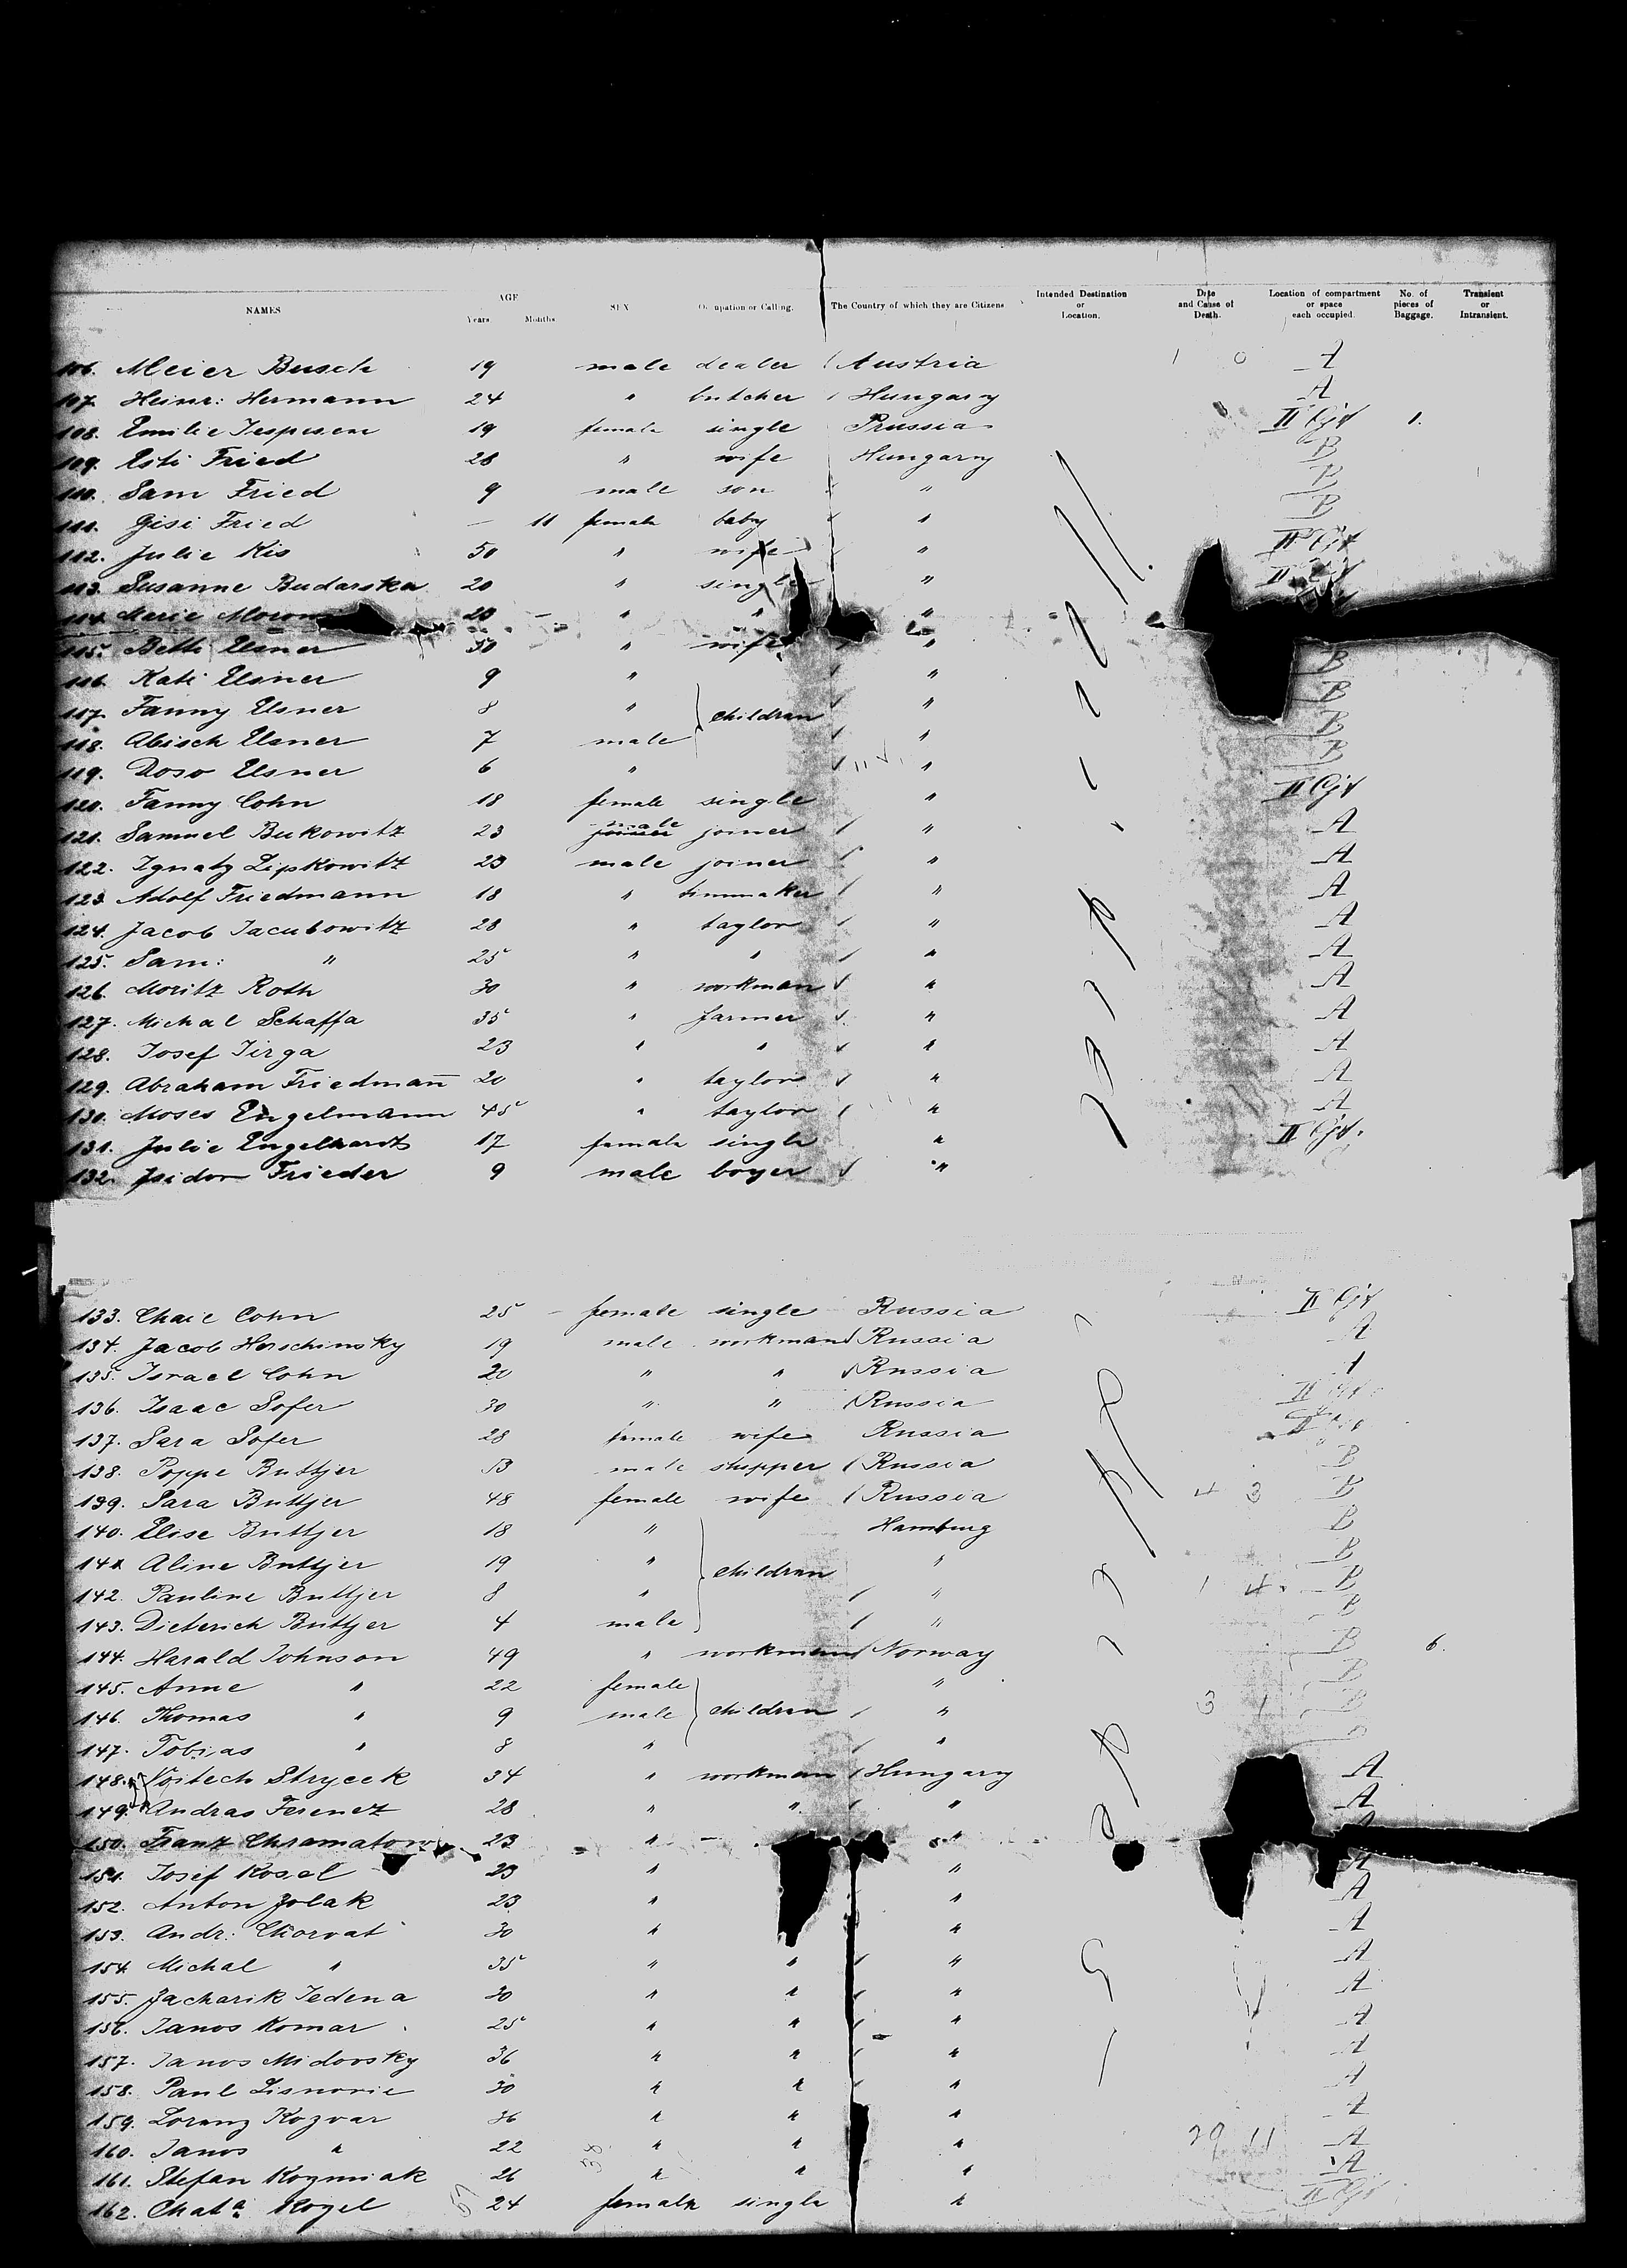 NAMES AGE Years. Months. SEX Occupation or Calling. The Country of which they are Citizens Intended Destination or Location. Date and Cause of Death. Location of compartment or space each occupied. No. of pieces of Baggage. Transient or Intransient.
106. Meier Busch 19 male dealer Austria 1 0 A
107. Heinr: Hermann 24 " butcher Hungary A
108. Emilie Jespersen 19 female single Prussia II 1.
109. Esti Fried 28 " wife Hungary B
110. Sam Fried 9 male son " B
111. Gisi Fried — 11 female baby " B
112. Julie Kis 50 " wife " II
113. Susanne Budarska 20 " single " II
114. Marie 20 " " "
115. Betti Elsner 30 " wife " B
116. Kati Elsner 9 " " B
117. Fanny Elsner 8 " children " B
118. Abisch Elsner 7 male " B
119. Doso Elsner 6 " "
120. Fanny Cohn 18 female single " II
121. Samuel Bukowitz 23 male joiner " A
122. Ignatz Lipkowitz 23 male joiner " A
123. Adolf Friedmann 18 " " A
124. Jacob Jacubowitz 28 " taylor " A
125. Sam: " 25 " " " A
126. Moritz Roth 30 " workman " A
127. Michal Schaffa 35 " farmer " A
128. Josef Jirga 23 " " " A
129. Abraham Friedman̄ 20 " taylor " A
130. Moses Engelmann 45 " taylor " A
131. Julie Engelhardt 17 female single " II
132. Isidor Frieder 9 male boyer "
133. Chaie Cohn 25 – female single Russia II
134. Jacob Herschinsky 19 male workman Russia A
135. Israel Cohn 20 " " Russia A
136. Isaac Sofer 30 " " Russia II
137. Sara Sofer 28 female wife Russia II
138. Poppe Buttjer 53 male Russia B
139. Sara Buttjer 48 female wife Russia 4 3 B
140. Elise Buttjer 18 " Hamburg B
141. Aline Buttjer 19 " children " B
142. Pauline Buttjer 8 " " 1 4. B
143. Dieterich Buttjer 4 male " B
144. Harald Johnson 49 " workman Norway B 6.
145. Anne " 22 female " B
146. Thomas " 9 male children " 3 1 B
147. Tobias " 8 " "
148. Voitech Strycek 34 " workman Hungary A
149. Andras Ferencz 28 " " " A
150. Franz Chramatow 23 " "
151. Josef Kosal 23 " " A
152. Anton Jolak 23 " " A
153. Andr: Chorvat 30 " " A
154. Michal " 35 " " " A
155. Jacharik Jedena 30 " " " A
156. Janos Komar 25 " " " A
157. Janos Midovsky 36 " " " A
158. Paul Lisnovie 30 " " " A
159. Lorenz Kozvar 36 " " " A
160. Janos " 22 " " " 29 11 A
161. Stefan Kozmiak 26 " " " A
162. Kozel 24 female single " II